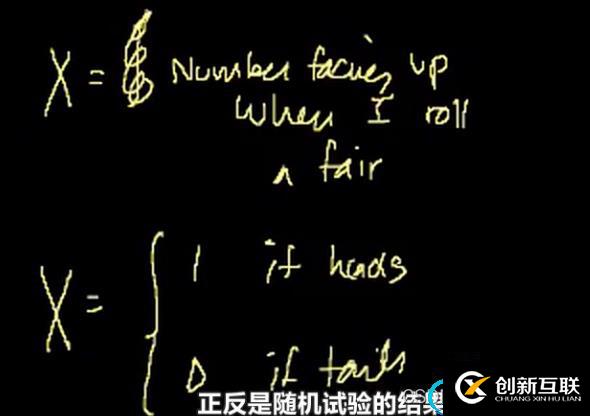 X = Number facing up
when I roll
a fair
X = { 1 if heads
0 if tails
正反是随机试验的结
创新互联
CHUANG XIN HU LIAN